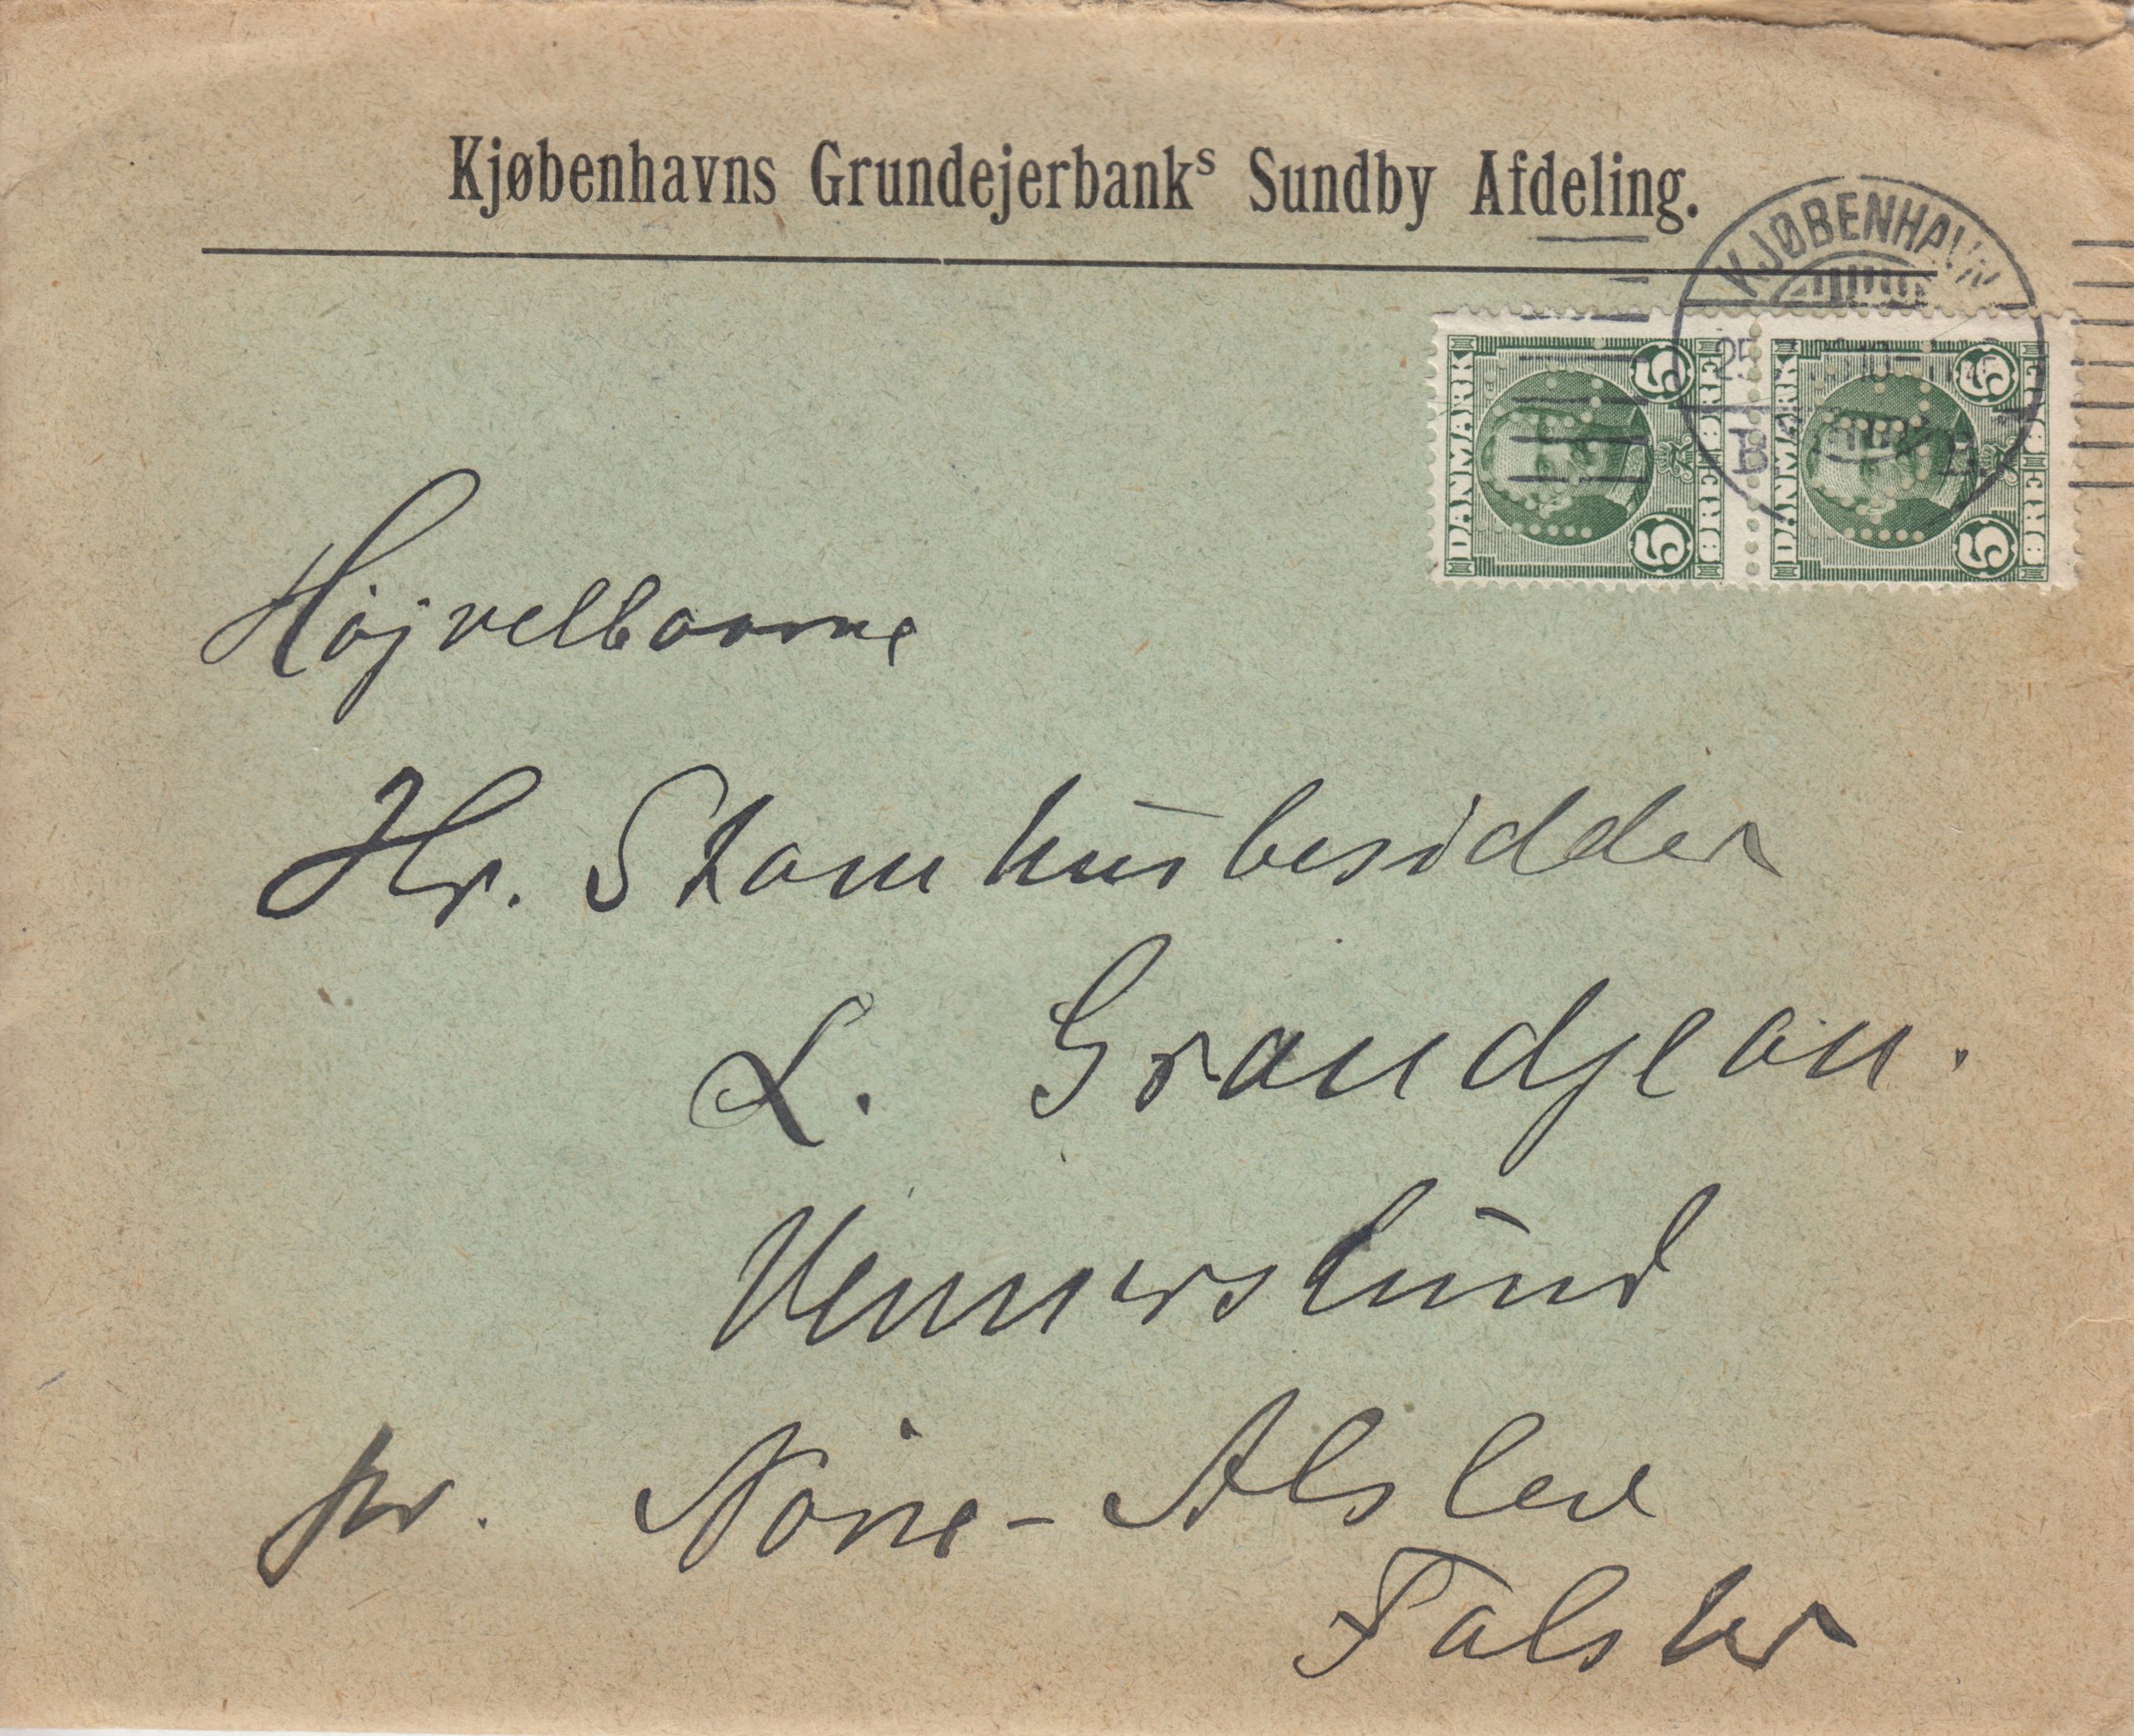 Kjøbenhavns Grundejerbanks Sundby Afdeling.
KJØBENHAVN
25
B
DANMARK 5 5 ØRE
DANMARK 5 5 ØRE
Højvelbaarne
Hr. Stamhusbesidder
L. Grandjean.
Vennerslund
pr. Nørre-Alslev
Falster